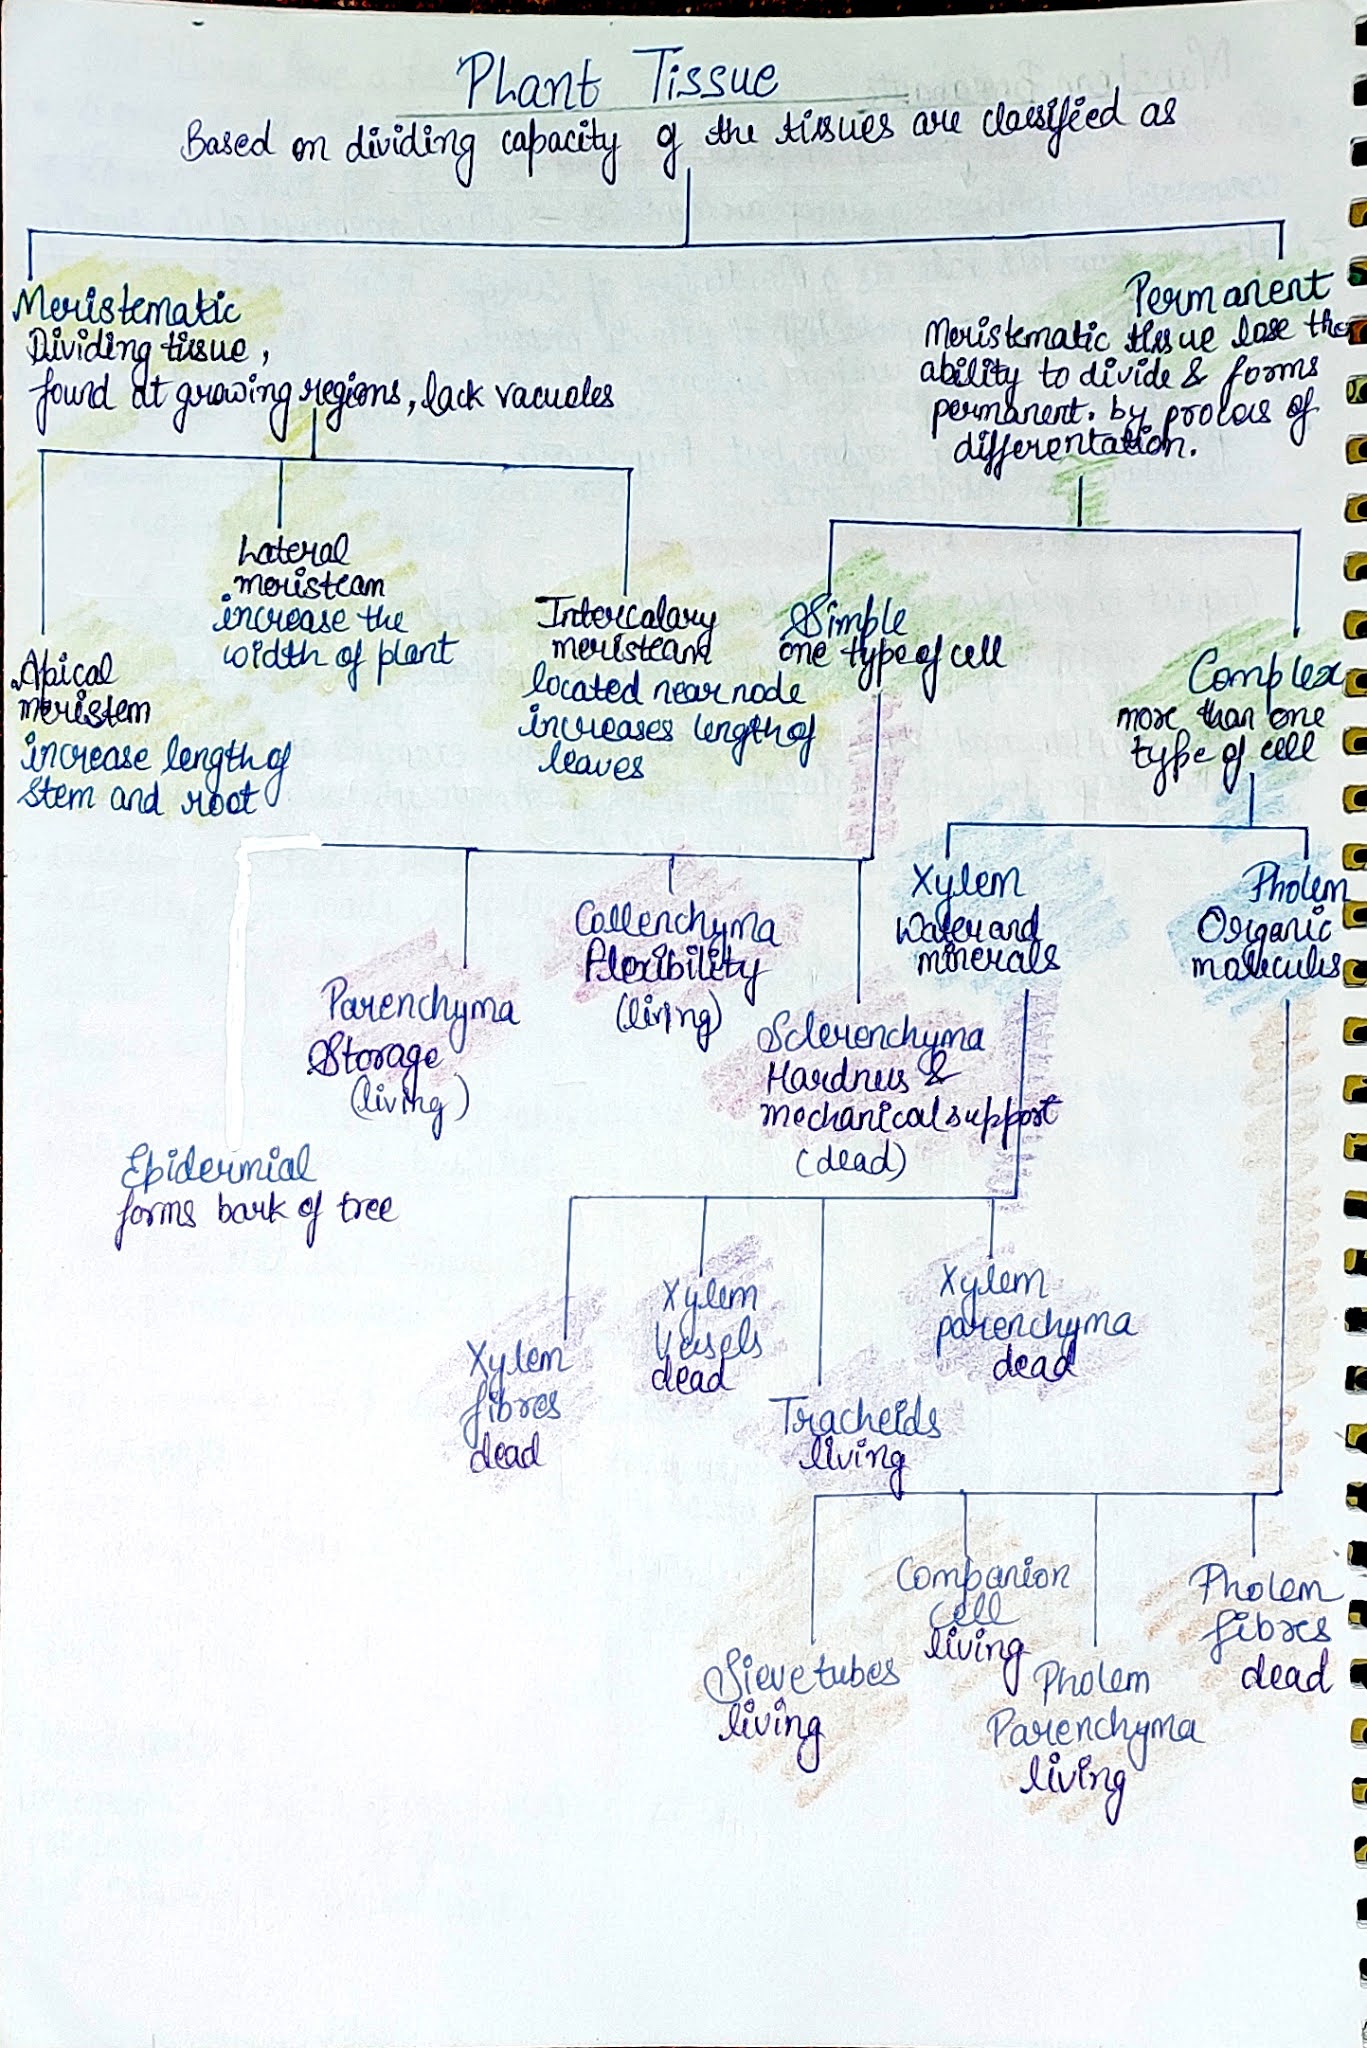 Plant Tissue
Based on dividing capacity of the tissues are classified as
Meristematic
Dividing tissue,
found at growing regions, lack vacuoles
Permanent
Meristematic tissue lose the
ability to divide & forms
permanent. by process of
differentation.
Lateral
meristeam
increase the
width of plant
Apical
meristem
increase length of
stem and root
Intercalary
meristeam
located near node
increases length of
leaves
Simple
one type of cell
Complex
more than one
type of cell
Xylem
Water and
minerals
Pholem
Organic
Collenchyma
Flexibility
(living)
Parenchyma
Storage
(living)
Sclerenchyma
Hardness &
mechanical support
(dead)
Epidermial
forms bark of tree
Xylem
fibres
dead
Xylem
Vessels
dead
Tracheids
living
Xylem
parenchyma
dead
Sieve tubes
living
Companion
cell
living
Pholem
Parenchyma
living
Pholem
fibres
dead